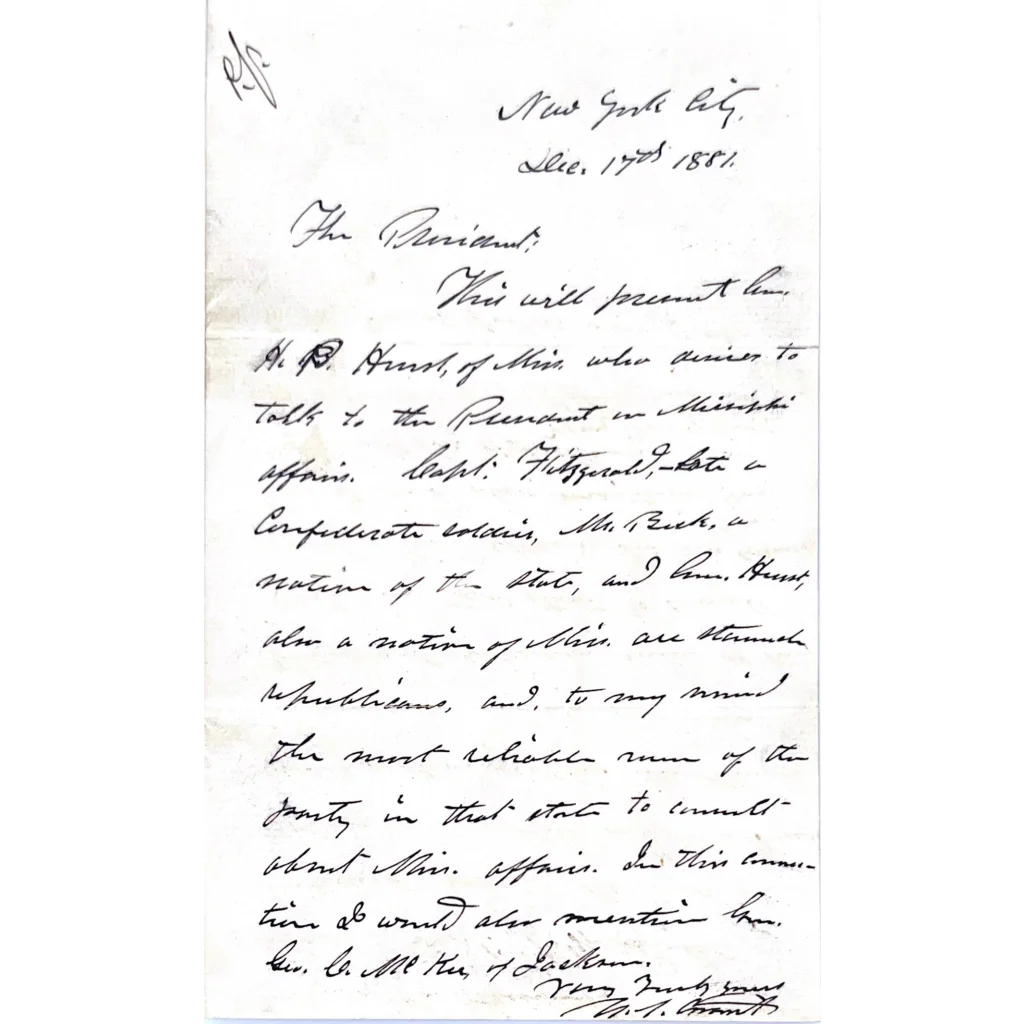 P.S.
New York City,
Dec. 17th 1881.
The President:
This will present Gen.
H. B. Hurst, of Miss. who desires to
talk to the President on Missisippi
affairs. Capt. Fitzgerald, late a
Confederate soldier, Mr. Beck, a
native of the state, and Gen. Hurst,
also a native of Miss. are staunch
republicans, and, to my mind
the most reliable men of the
party in that state to consult
about Miss. affairs. In this connec-
tion I would also mention Gen.
Geo. C. McKee, of Jackson.
Very Truly yours
U. S. Grant